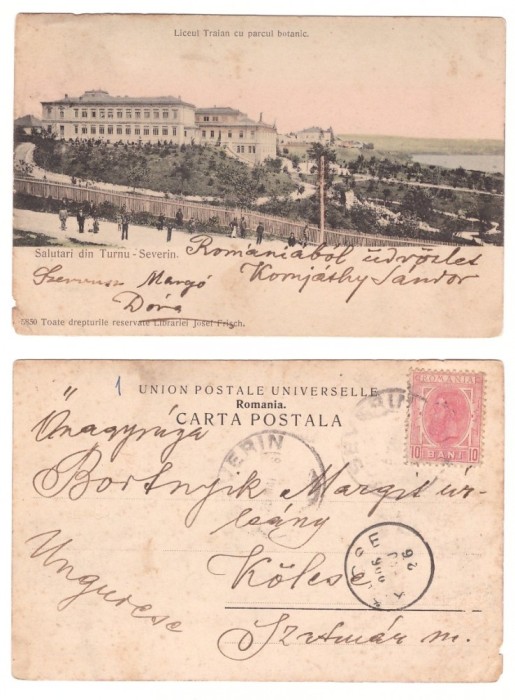 Liceul Traian cu parcul botanic.
Salutari din Turnu - Severin.
Romániából üdvözlet
Komjáthy Sandor
Szervusz Margó
Dóra
5850 Toate drepturile reservate Librariei Josef Frisch.
1
UNION POSTALE UNIVERSELLE
Romania.
CARTA POSTALA
ROMANIA
10 BANI 10
SEVERIN
Őnagysága
Bortnyik Margit úr-
leány
Kölcse
Ungurese
Szatmár m.